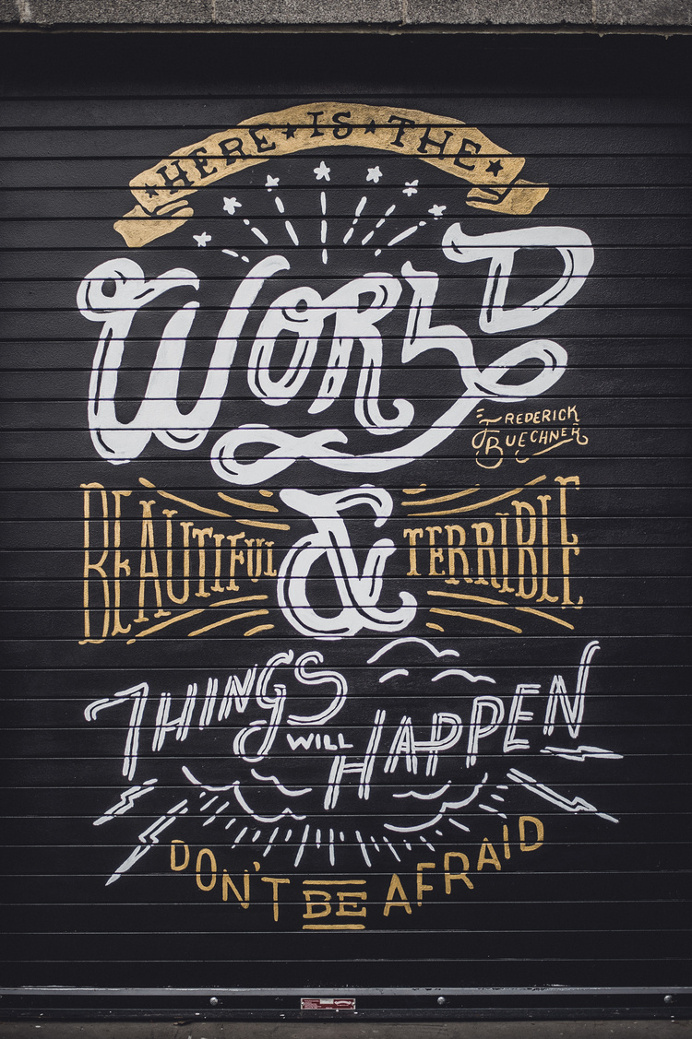 HERE IS THE
WORLD
FREDERICK
BUECHNER
BEAUTIFUL & TERRIBLE
THINGS
WILL HAPPEN
DON'T BE AFRAID